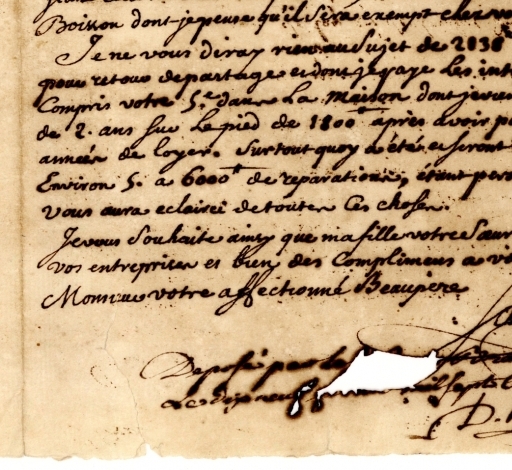 Boisson dont je pense qu'il sera exempt
Je ne vous diray rien au Sujet de 2838
pour retour de partage et dont je paye les int
Compris votre 5.e dans La maison dont je
de 2. ans sur Le pied de 1800 apres avoir
année de loyer. Surtout quoy a été et seront
Environ 5. a 6000 de reparations, étant
vous aura eclairci de toutes Ces choses.
Je vous Souhaite ainsy que ma fille votre
vos entreprises et bien des Complimens a
Monsieur votre affectionné Beaupere
Deposé par
Sept
D.